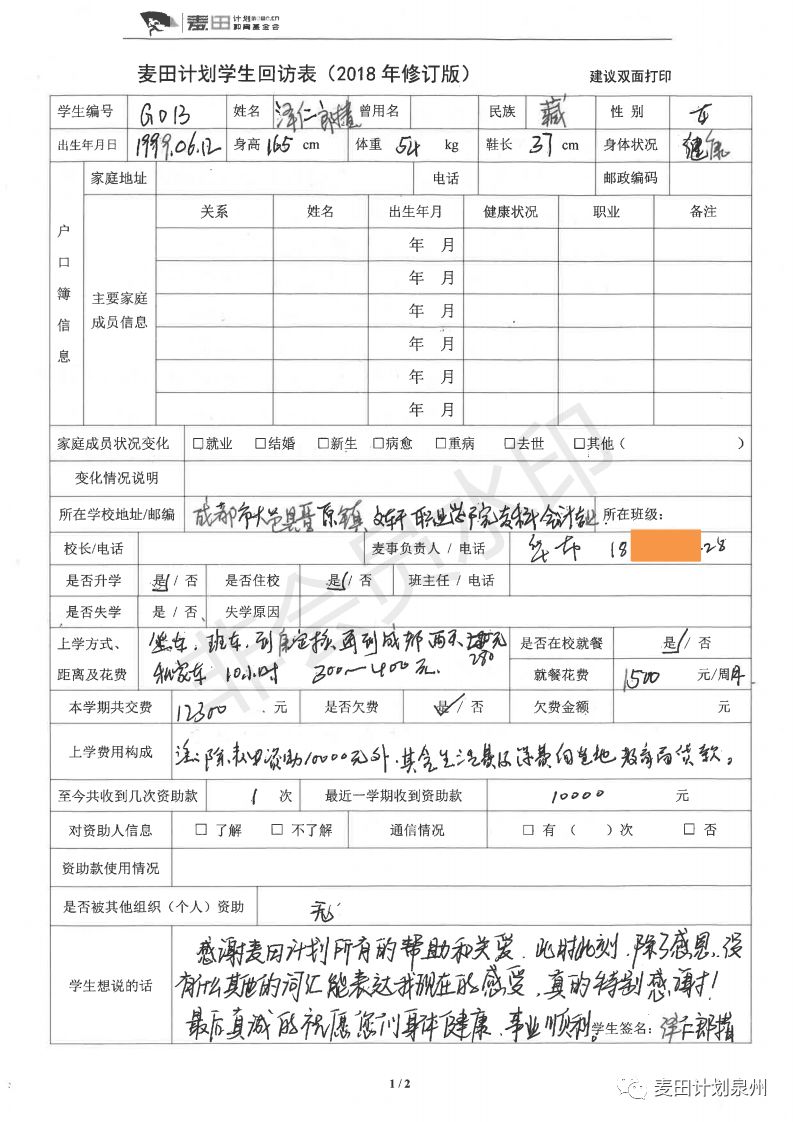 麦田计划
教育基金会
麦田计划学生回访表（2018年修订版） 建议双面打印
学生编号 G013 姓名 泽仁郎措 曾用名 民族 藏 性 别 女
出生年月日 1999.06.12 身高 165 cm 体重 54 kg 鞋长 37 cm 身体状况 健康
户口簿信息 家庭地址 电话 邮政编码
主要家庭成员信息 关系 姓名 出生年月 健康状况 职业 备注
年 月
年 月
年 月
年 月
年 月
年 月
家庭成员状况变化 □就业 □结婚 □新生 □病愈 □重病 □去世 □其他（ ）
变化情况说明
所在学校地址/邮编 成都市大邑县晋原镇 文轩职业学院专科会计专业 所在班级：
校长/电话 麦事负责人 / 电话 18 28
是否升学 是/ 否 是否住校 是/ 否 班主任 / 电话
是否失学 是 / 否 失学原因
上学方式、 坐车，班车，到康定 再到成都 两天 280元 是否在校就餐 是/ 否
距离及花费 私家车 10小时 300～400元. 就餐花费 1500 元/周月
本学期共交费 12300 元 是否欠费 是 / 否 欠费金额 元
上学费用构成 注:除麦田资助10000元外,其余生活费及学费由当地教育局贷款。
至今共收到几次资助款 1 次 最近一学期收到资助款 10000 元
对资助人信息 □ 了解 □ 不了解 通信情况 □ 有（ ）次 □ 否
资助款使用情况
是否被其他组织（个人）资助 无
学生想说的话 感谢麦田计划所有的帮助和关爱，此时此刻，除了感恩，没
有什么其他的词汇能表达我现在的感受，真的特别感谢！
最后真诚的祝愿您们身体健康，事业顺利。学生签名：泽仁郎措
1 / 2
非会员水印
麦田计划泉州